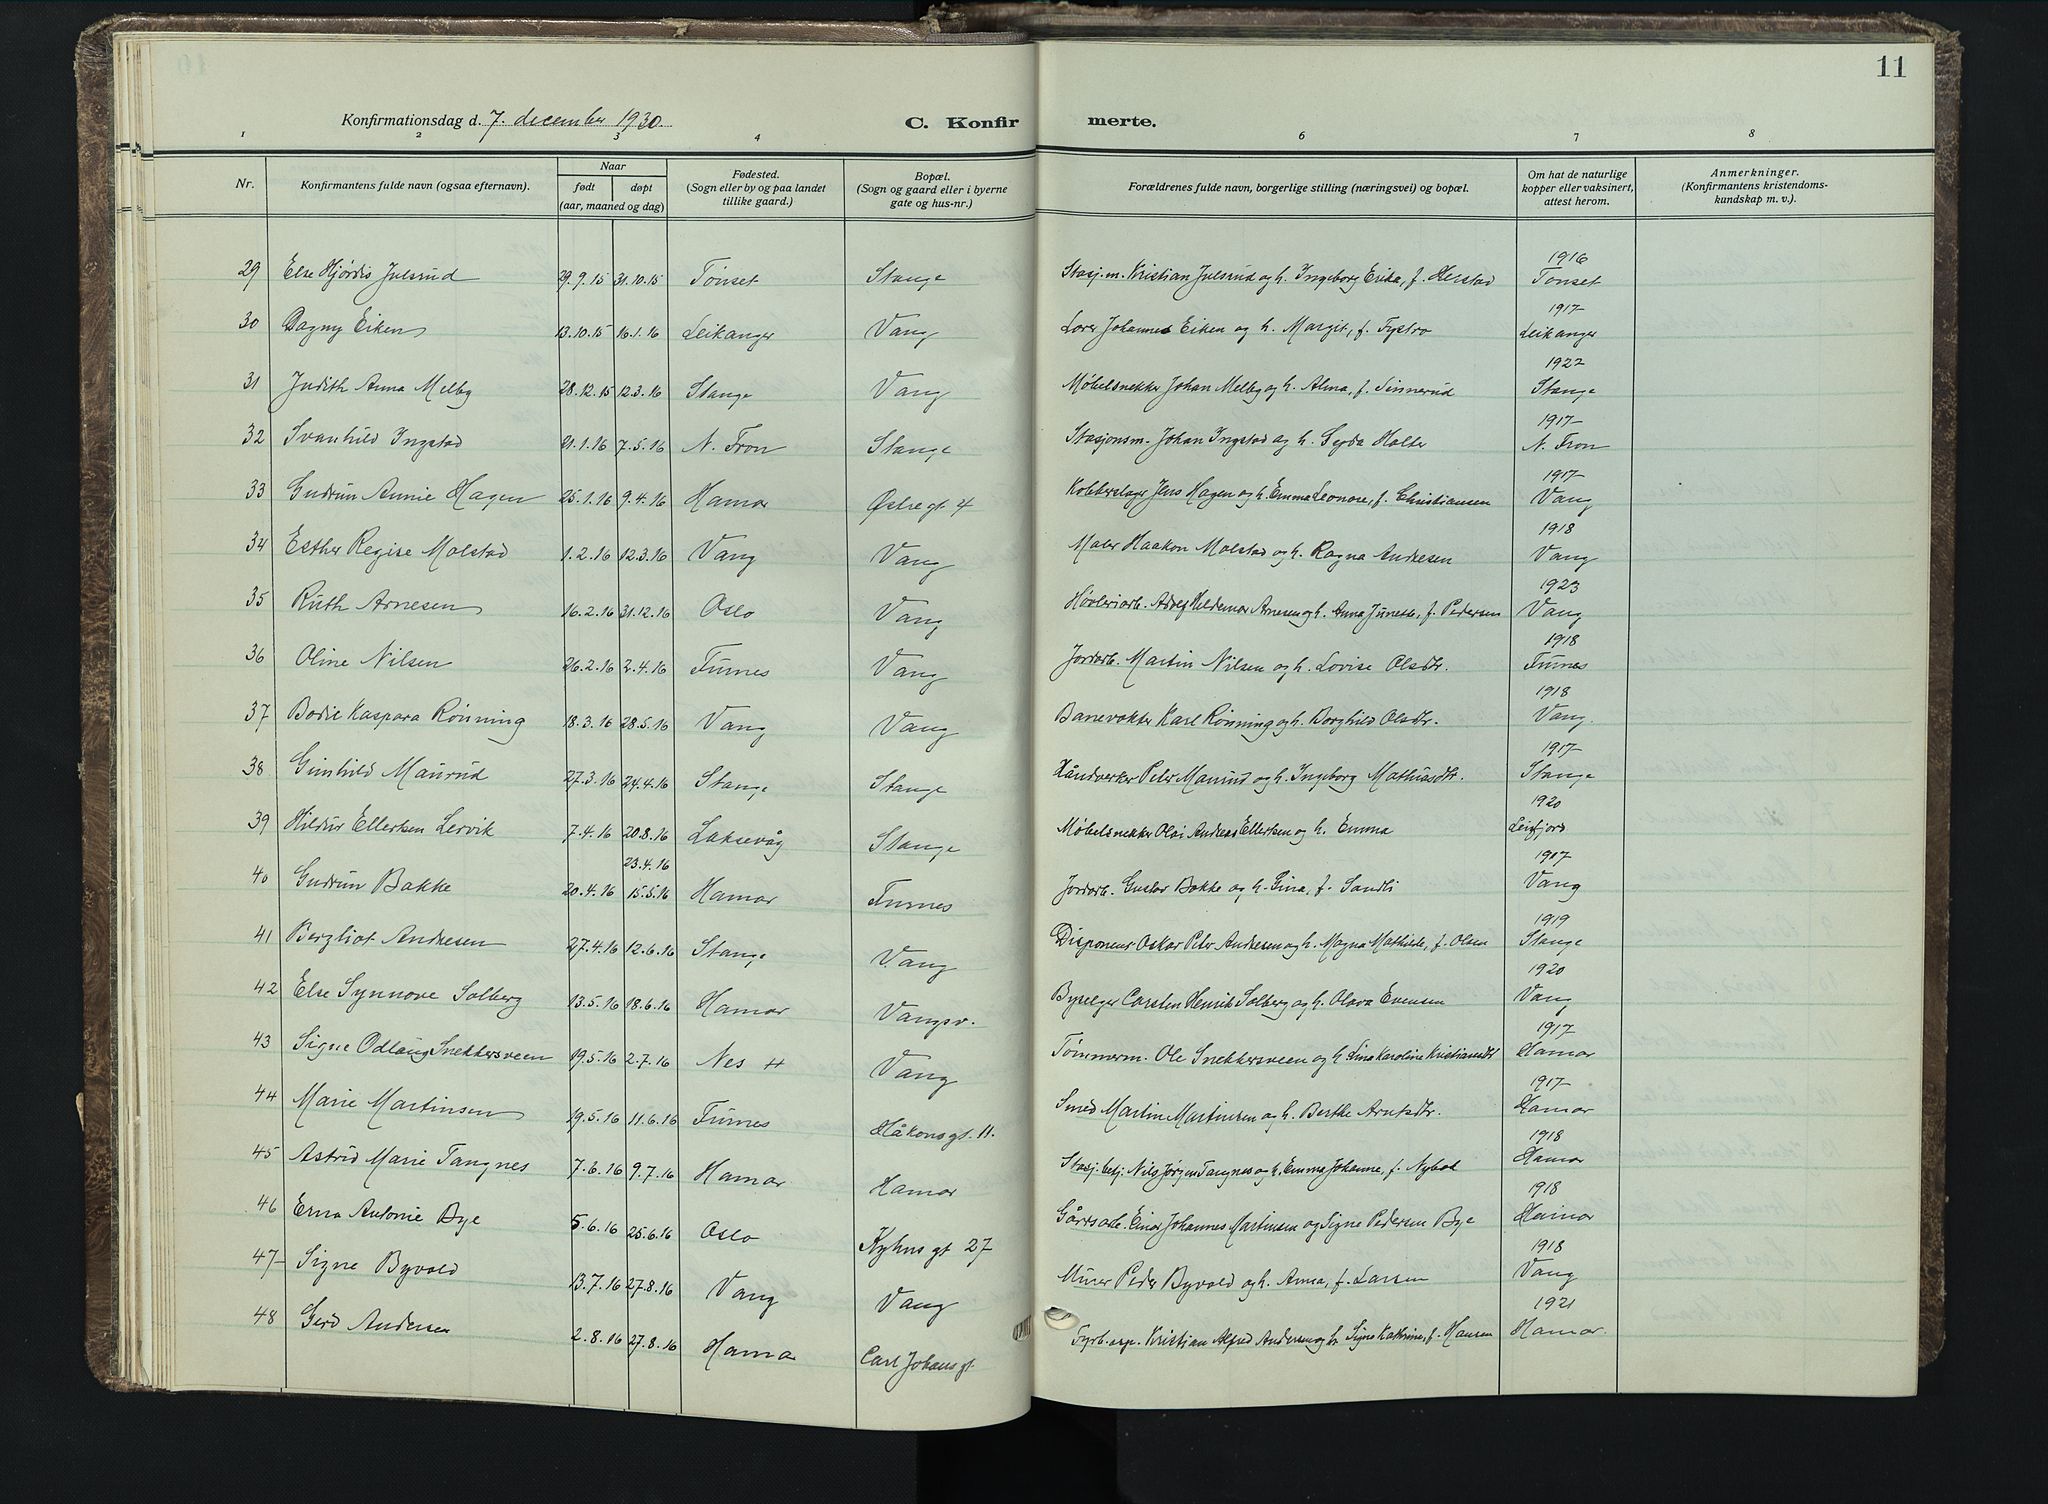 11
Konfirmationsdag d. 7. december 1930.
C. Konfirmerte.
1 2 3 4 5 6 7 8
Nr. Konfirmantens fulde navn (ogsaa efternavn). Naar født døpt (aar, maaned og dag) Fødested. (Sogn eller by og paa landet tillike gaard.) Bopæl. (Sogn og gaard eller i byerne gate og hus-nr.) Forældrenes fulde navn, borgerlige stilling (næringsvei) og bopæl. Om hat de naturlige kopper eller vaksinert, attest herom. Anmerkninger. (Konfirmantens kristendoms-kundskap m. v.).
29 Else Hjørdis Julsrud 29.9.15 31.10.15 Tønset Stange Stasj.m. Kristian Julsrud og h. Ingeborg Erika, f. Herstad 1916 Tønset
30 Dagny Eiken 13.10.15 16.1.16 Leikanger Vang Lærer Johannes Eiken og h. Margit, f. Fystro 1917 Leikanger
31 Judith Anna Melby 28.12.15 12.3.16 Stange Vang Møbelsnekker Johan Melby og h. Alma, f. Finnerud 1922 Stange
32 Svanhild Ingstad 21.1.16 7.5.16 N. Fron Stange Stasjonsm. Johan Ingstad og h. Gyda Holter 1917 N. Fron
33 Gudrun Annie Hagen 25.1.16 9.4.16 Hamar Østregt. 4 Kobberslager Jens Hagen og h. Emma Leonore, f. Christiansen 1917 Vang
34 Esther Regise Molstad 1.2.16 12.3.16 Vang Vang Maler Haakon Molstad og h. Ragna Andresen 1918 Vang
35 Ruth Arnesen 16.2.16 31.12.16 Oslo Vang Høvleriarb. Adolf Hildemar Arnesen og h. Anna Junette, f. Pedersen 1923 Vang
36 Oline Nilsen 26.2.16 2.4.16 Furnes Vang Jordarb. Martin Nilsen og h. Lovise Olsdtr. 1918 Furnes
37 Bodil Kaspara Rønning 18.3.16 28.5.16 Vang Vang Banevokter Karl Rønning og h. Borghild Olsdtr. 1918 Vang.
38 Gunhild Maurud 27.3.16 24.4.16 Stange Stange Håndverker Peter Maurud og h. Ingeborg Mathiasdtr. 1917 Stange
39 Hildur Ellertsen Lervik 7.4.16 20.8.16 Laksevåg Stange Møbelsnekker Olai Andreas Ellertsen og h. Emma 1920
40 Gudrun Bakke 20.4.16 23.4.16 15.5.16 Hamar Furnes Jordarb. Gustav Bakke og h. Gina, f. Sandli 1917 Vang
41 Bergliot Andresen 27.4.16 12.6.16 Stange Vang Disponent Oskar Peter Andresen og h. Magna Mathilde, f. Olsen 1919 Stange
42 Else Synnøve Solberg 13.5.16 18.6.16 Hamar Vangsv. Byselger Carsten Henrik Solberg og h. Olava Evensen 1920 Vang
43 Signe Odlaug Snekkersveen 19.5.16 2.7.16 Nes H Vang Tømmerm. Ole Snekkersveen og h. Lina Karoline Kristiansdtr 1917 Hamar
44 Marie Martinsen 19.5.16 11.6.16 Furnes Håkonsgt. 11. Smed Martin Martinsen og h. Berthe Arntsdtr. 1917 Hamar
45 Astrid Marie Tangnes 7.6.16 9.7.16 Hamar Hamar Stasj.betj. Nils Jørgen Tangnes og h. Emma Johanne, f. Nybod 1918 Hamar
46 Erna Antonie Bye 5.6.16 25.6.16 Oslo Kyhns gt 27 Gårdsarb. Einar Johannes Martinsen og Signe Pedersen Bye 1918 Hamar
47 Signe Byvold 13.7.16 27.8.16 Vang Vang Murer Peder Byvold og h. Anna, f. Larsen 1918 Vang
48 Gerd Andersen 2.8.16 27.8.16 Hamar Carl Johans gt. Kristian Alfred Andersen og h. Signe Kathrine, f. Hansen 1921 Hamar.